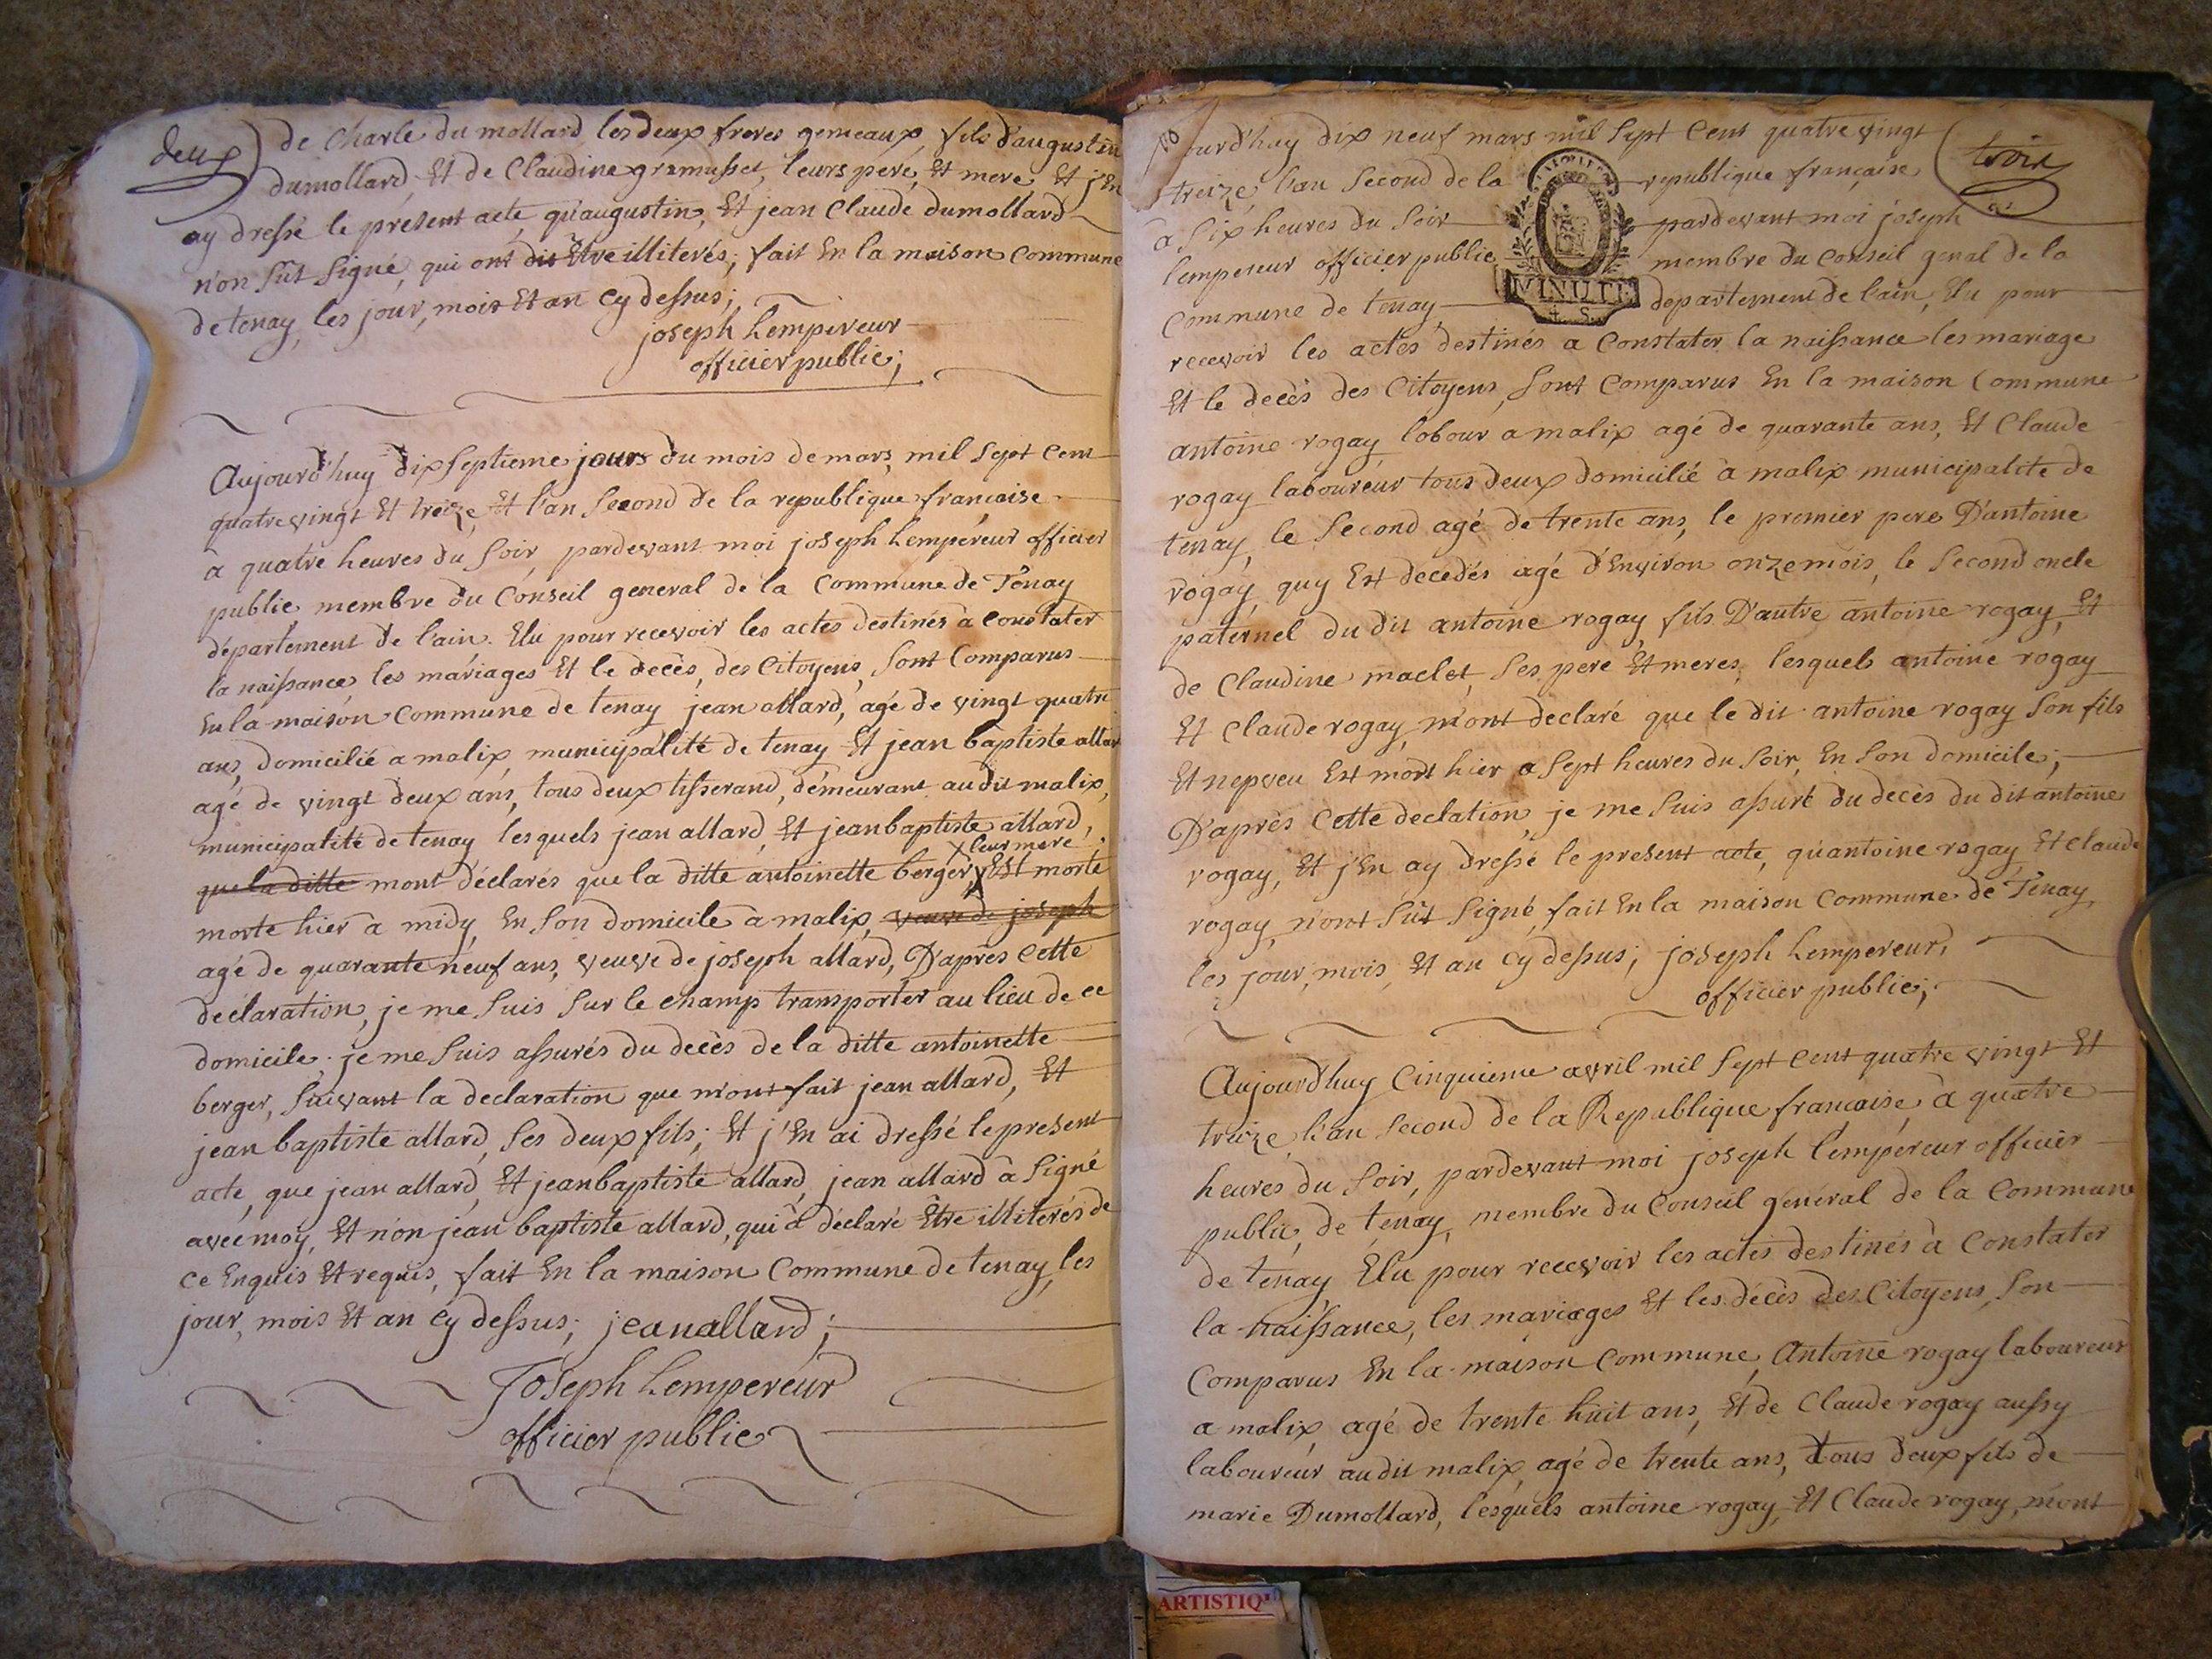 deux
de Charle du mollard, les deux freres gemeaux, fils d'augustin
dumollard, Et de Claudine gramusset, leurs pere, Et mere, Et j'En
ay dressé le présent acte, qu'augustin, Et jean Claude dumollard
n'on sût signé, qui ont dit Être illiterés; fait En la maison Commune
de tenay, les jour, mois Et an Cy dessus;
joseph Lempereur
officier public;
Aujourd'huy dix septieme jours du mois de mars, mil sept Cent
quatre vingt Et treize, Et l'an second de la republique francaise
à quatre heures du soir, pardevant moi joseph Lempereur officier
public membre du Conseil general de la Commune de Tenay
département de l'ain. Elu pour recevoir les actes destinés à constater
la naissance, les mariages Et le decès, des Citoyens, sont Comparus
En la maison Commune de tenay jean allard, agé de vingt quatre
ans, domicilié a malix, municipalité de tenay Et jean baptiste allar
agé de vingt deux ans, tous deux tisserand, demeurant audit malix,
municipalité de tenay lesquels jean allard, Et jean baptiste allard,
x leur mere
que la ditte mont déclarés que la ditte antoinette berger, x Est morte
morte hier à midy, En son domicile à malix, veuve de joseph
agé de quarante neuf ans, veuve de joseph allard, D'après Cette
declaration, je me suis sur le champ transporter au lieu de ce
domicile. je me suis assurés du decès de la ditte antoinette
berger, suivant la declaration que m'ont fait jean allard, Et
jean baptiste allard, ses deux fils; Et j'En ai dressé le present
acte, que jean allard, Et jean baptiste allard, jean allard à signé
avec moy, Et non jean baptiste allard, qui à déclaré Être illiterés de
Ce Enquis Et requis, fait En la maison Commune de tenay, les
jour, mois Et an Cy dessus; jean allard;
Joseph Lempereur
officier public
ourd'huy dix neuf mars mil sept Cent quatre vingt
troix
treize, l'an second de la republique française
à six heures du soir pardevant moi joseph
lempereur officier public membre du Conseil genal de la
Commune de tenay, departement de l'ain, Elu pour
MINUTE
4. S.
recevoir les actes destinés a Constater la naissance les mariage
Et le decès des Citoyens, sont Comparus En la maison Commune
antoine rogay labour a malix agé de quarante ans, Et Claude
rogay laboureur tous deux domicilié à malix municipalite de
tenay, le second agé de trente ans, le premier pere D'antoine
rogay, quy Est decedés agé d'Environ onze mois, le second oncle
paternel du dit antoine rogay, fils D'autre antoine rogay, Et
de Claudine maclet, ses pere Et meres, lesquels antoine rogay
Et Claude rogay, m'ont declaré que le dit antoine rogay son fils
Et nepveu Est mort hier a sept heures du soir, En son domicile;
D'après Cette declation, je me suis assuré du decès du dit antoine
rogay, Et j'En ay dressé le present acte, qu'antoine rogay, Et Claude
rogay, n'ont sût signé, fait En la maison Commune de Tenay,
les jour, mois, Et an Cy dessus; joseph Lempereur,
officier public;
Aujourd'huy Cinquieme avril mil sept Cent quatre vingt Et
treize, l'an second de la Republique francaise, à quatre
heures du soir, pardevant moi joseph l'empereur officier
public, de tenay, membre du Conseil général de la Commune
de tenay Elu pour recevoir les actes destinés à Constater
la naissance, les mariages Et les décès des Citoyens, son
Comparus En la maison Commune, Antoine rogay laboureur
a malix, agé de trente huit ans, Et de Claude rogay aussy
laboureur audit malix, agé de trente ans, tous deux fils de
marie Dumollard, lesquels antoine rogay, Et Claude rogay, m'ont
ARTISTIQ